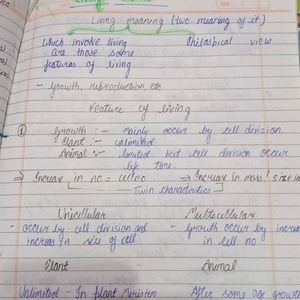 Living meaning (two meaning of it)
Which involve living Philospical view
are those some
features of living
- Growth, reproduction, etc
Feature of living
① Growth :- mainly occur by cell division.
Plant :- unlimited
Animal :- limited but cell division occur
life time.
⇒ Increase in no = cell no ⇒ Increase in mass / size in
Twin characteristics
Unicellular Multicellular
- occur by cell division and - growth occur by increa
increas in size of cell in cell no
Plant Animal
Unlimited - In plant Meristem After some age growth